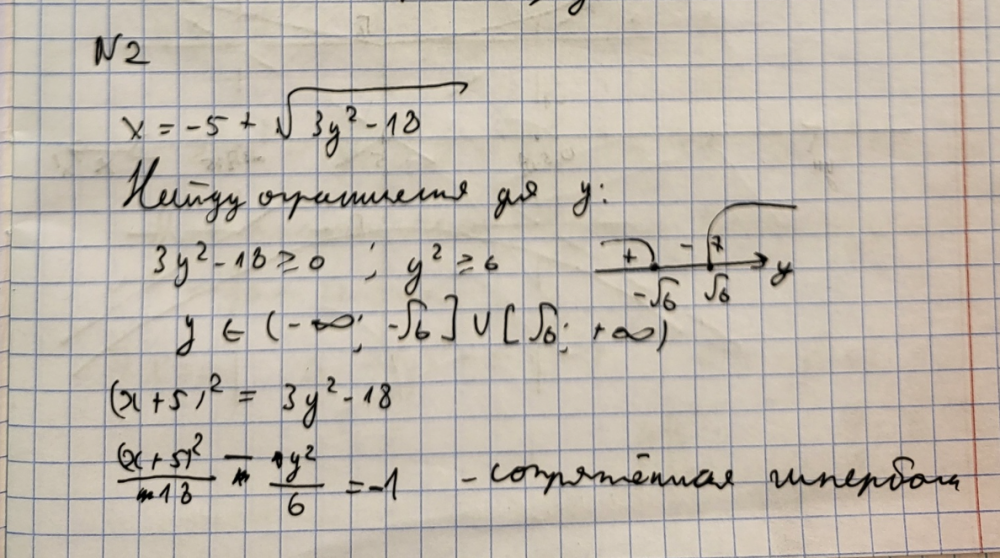 N2
x = -5 + √(3y² - 18)
Найду ограничения для y:
3y² - 18 ≥ 0 ; y² ≥ 6
+ - + y
-√6 √6
y ∈ (-∞; -√6] ∪ [√6; +∞)
(x + 5)² = 3y² - 18
(x + 5)²/18 - y²/6 = -1 - сопряжённая гипербола